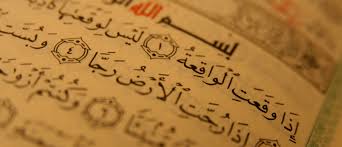 بِسْمِ اللَّهِ
إِذَا وَقَعَتِ الْوَاقِعَةُ ١ لَيْسَ لِوَقْعَتِهَا
إِذَا رُجَّتِ الْأَرْضُ رَجًّا ٤ وَبُسَّتِ
٦ وَكُنتُمْ أَزْوَٰجًا